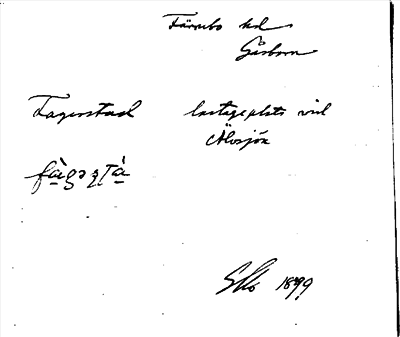 Färnebo hd
Gåsborn
Fagerstad lastageplats vid
Älvsjön
fàgəsta
SKo 1899